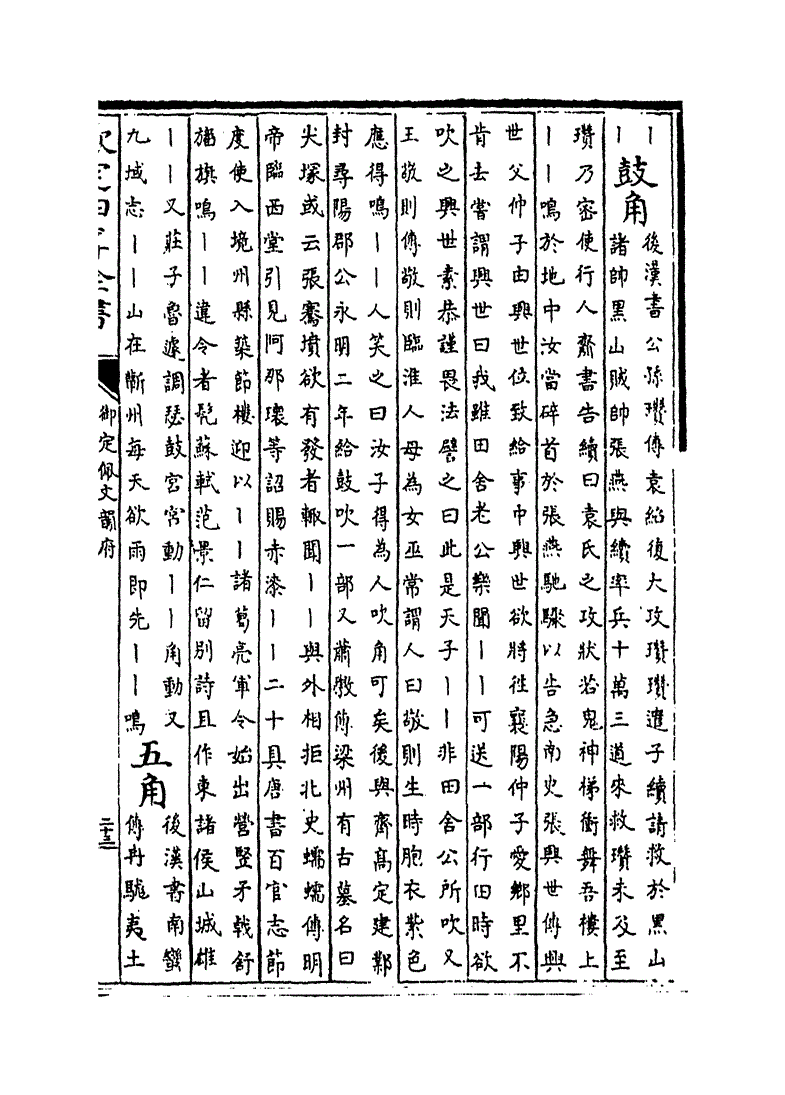 ｜
｜
鼓角
後漢書公孫瓚傳袁紹復大攻瓚瓚遣子續請救於黑山
諸帥黑山賊帥張燕與續率兵十萬三道來救瓚未及至
瓚乃密使行人齎書告續曰袁氏之攻狀若鬼神梯衝舞吾樓上
｜｜鳴於地中汝當碎首於張燕馳驟以告急南史張興世傳興
世父仲子由興世位致給事中興世欲將徃襄陽仲子愛鄉里不
肯去嘗謂興世曰我雖田舍老公樂聞｜｜可送一部行田時欲
吹之興世素恭謹畏法譬之曰此是天子｜｜非田舍公所吹又
王敬則傳敬則臨淮人母為女巫常謂人曰敬則生時胞衣紫色
應得鳴｜｜人笑之曰汝子得為人吹角可矣後與齊髙定建鄴
封尋陽郡公永明二年給鼓吹一部又蕭敩傳梁州有古墓名曰
尖塚或云張騫墳欲有發者輒聞｜｜與外相拒北史蠕蠕傳明
帝臨西堂引見阿那瓌等詔賜赤漆｜｜二十具唐書百官志節
度使入境州縣築節樓迎以｜｜諸葛亮軍令始出營竪矛戟舒
旛旗鳴｜｜違令者髠蘇軾范景仁留别詩且作東諸侯山城雄
｜｜又莊子魯遽調瑟鼓宫宫動｜｜角動又
九域志｜｜山在蘄州每天欲雨即先｜｜鳴
五角
後漢書南蠻
傳冉駹夷土
欽定四庫全書
御定佩文韻府
二十三